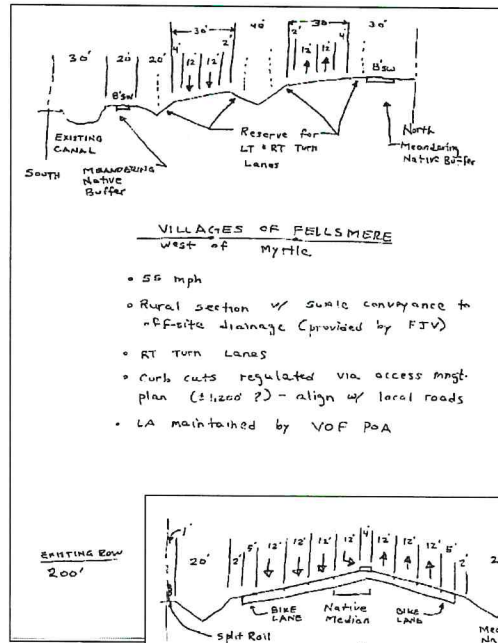 30' 40' 30' 30'
30' 20' 20' 4' 12' 12' 2' 2' 12' 12' 4'
8'SW 8'SW
EXISTING CANAL
SOUTH
MEANDERING Native Buffer
Reserve for LT & RT Turn Lanes
North
Meandering Native Buffer
VILLAGES OF FELLSMERE
West of Myrtle
• 55 mph
• Rural section w/ swale conveyance to
off-site drainage (provided by FJV)
• RT Turn Lanes
• Curb cuts regulated via access mngt.
plan (±1,200' ?) - align w/ local roads
• LA maintained by VOF POA
EXISTING ROW
200'
1'
20' 2' 5' 12' 12' 12' 12' 4' 12' 12' 12' 5' 2'
BIKE LANE
Native Median
BIKE LANE
Split Rail